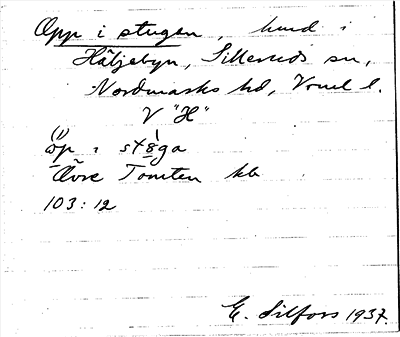 Opp i stugen, hmd i
Häljebyn, Silleruds sn,
Nordmarks hd, Vrml l.
V "H"
öp i stöga
Övre Tomten kb
103:12
E. Silfors 1937.